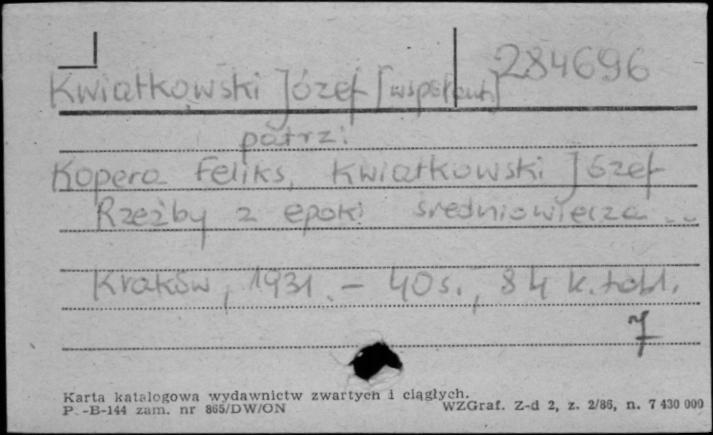 284696
Kwiatkowski Józef [współaut.]
patrz:
Kopera Feliks, Kwiatkowski Józef
Rzeźby z epoki średniowiecza...
Kraków, 1931. - 40 s., 84 k. tabl.
7
Karta katalogowa wydawnictw zwartych i ciągłych.
P.-B-144 zam. nr 865/DW/ON WZGraf. Z-d 2, z. 2/86, n. 7 430 000